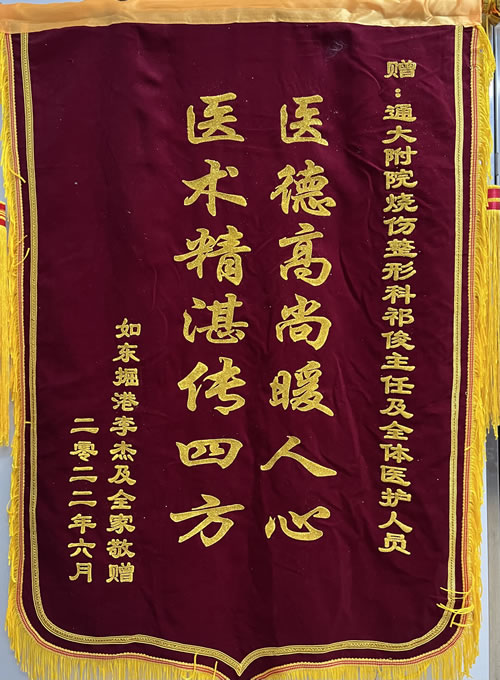 赠：通大附院烧伤整形科祁俊主任及全体医护人员
医德高尚暖人心
医术精湛传四方
如东掘港李杰及全家敬赠
二零二二年六月